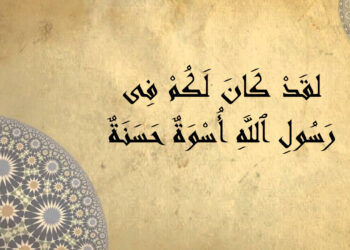 لَقَدْ كَانَ لَكُمْ فِى
رَسُولِ ٱللَّهِ أُسْوَةٌ حَسَنَةٌ